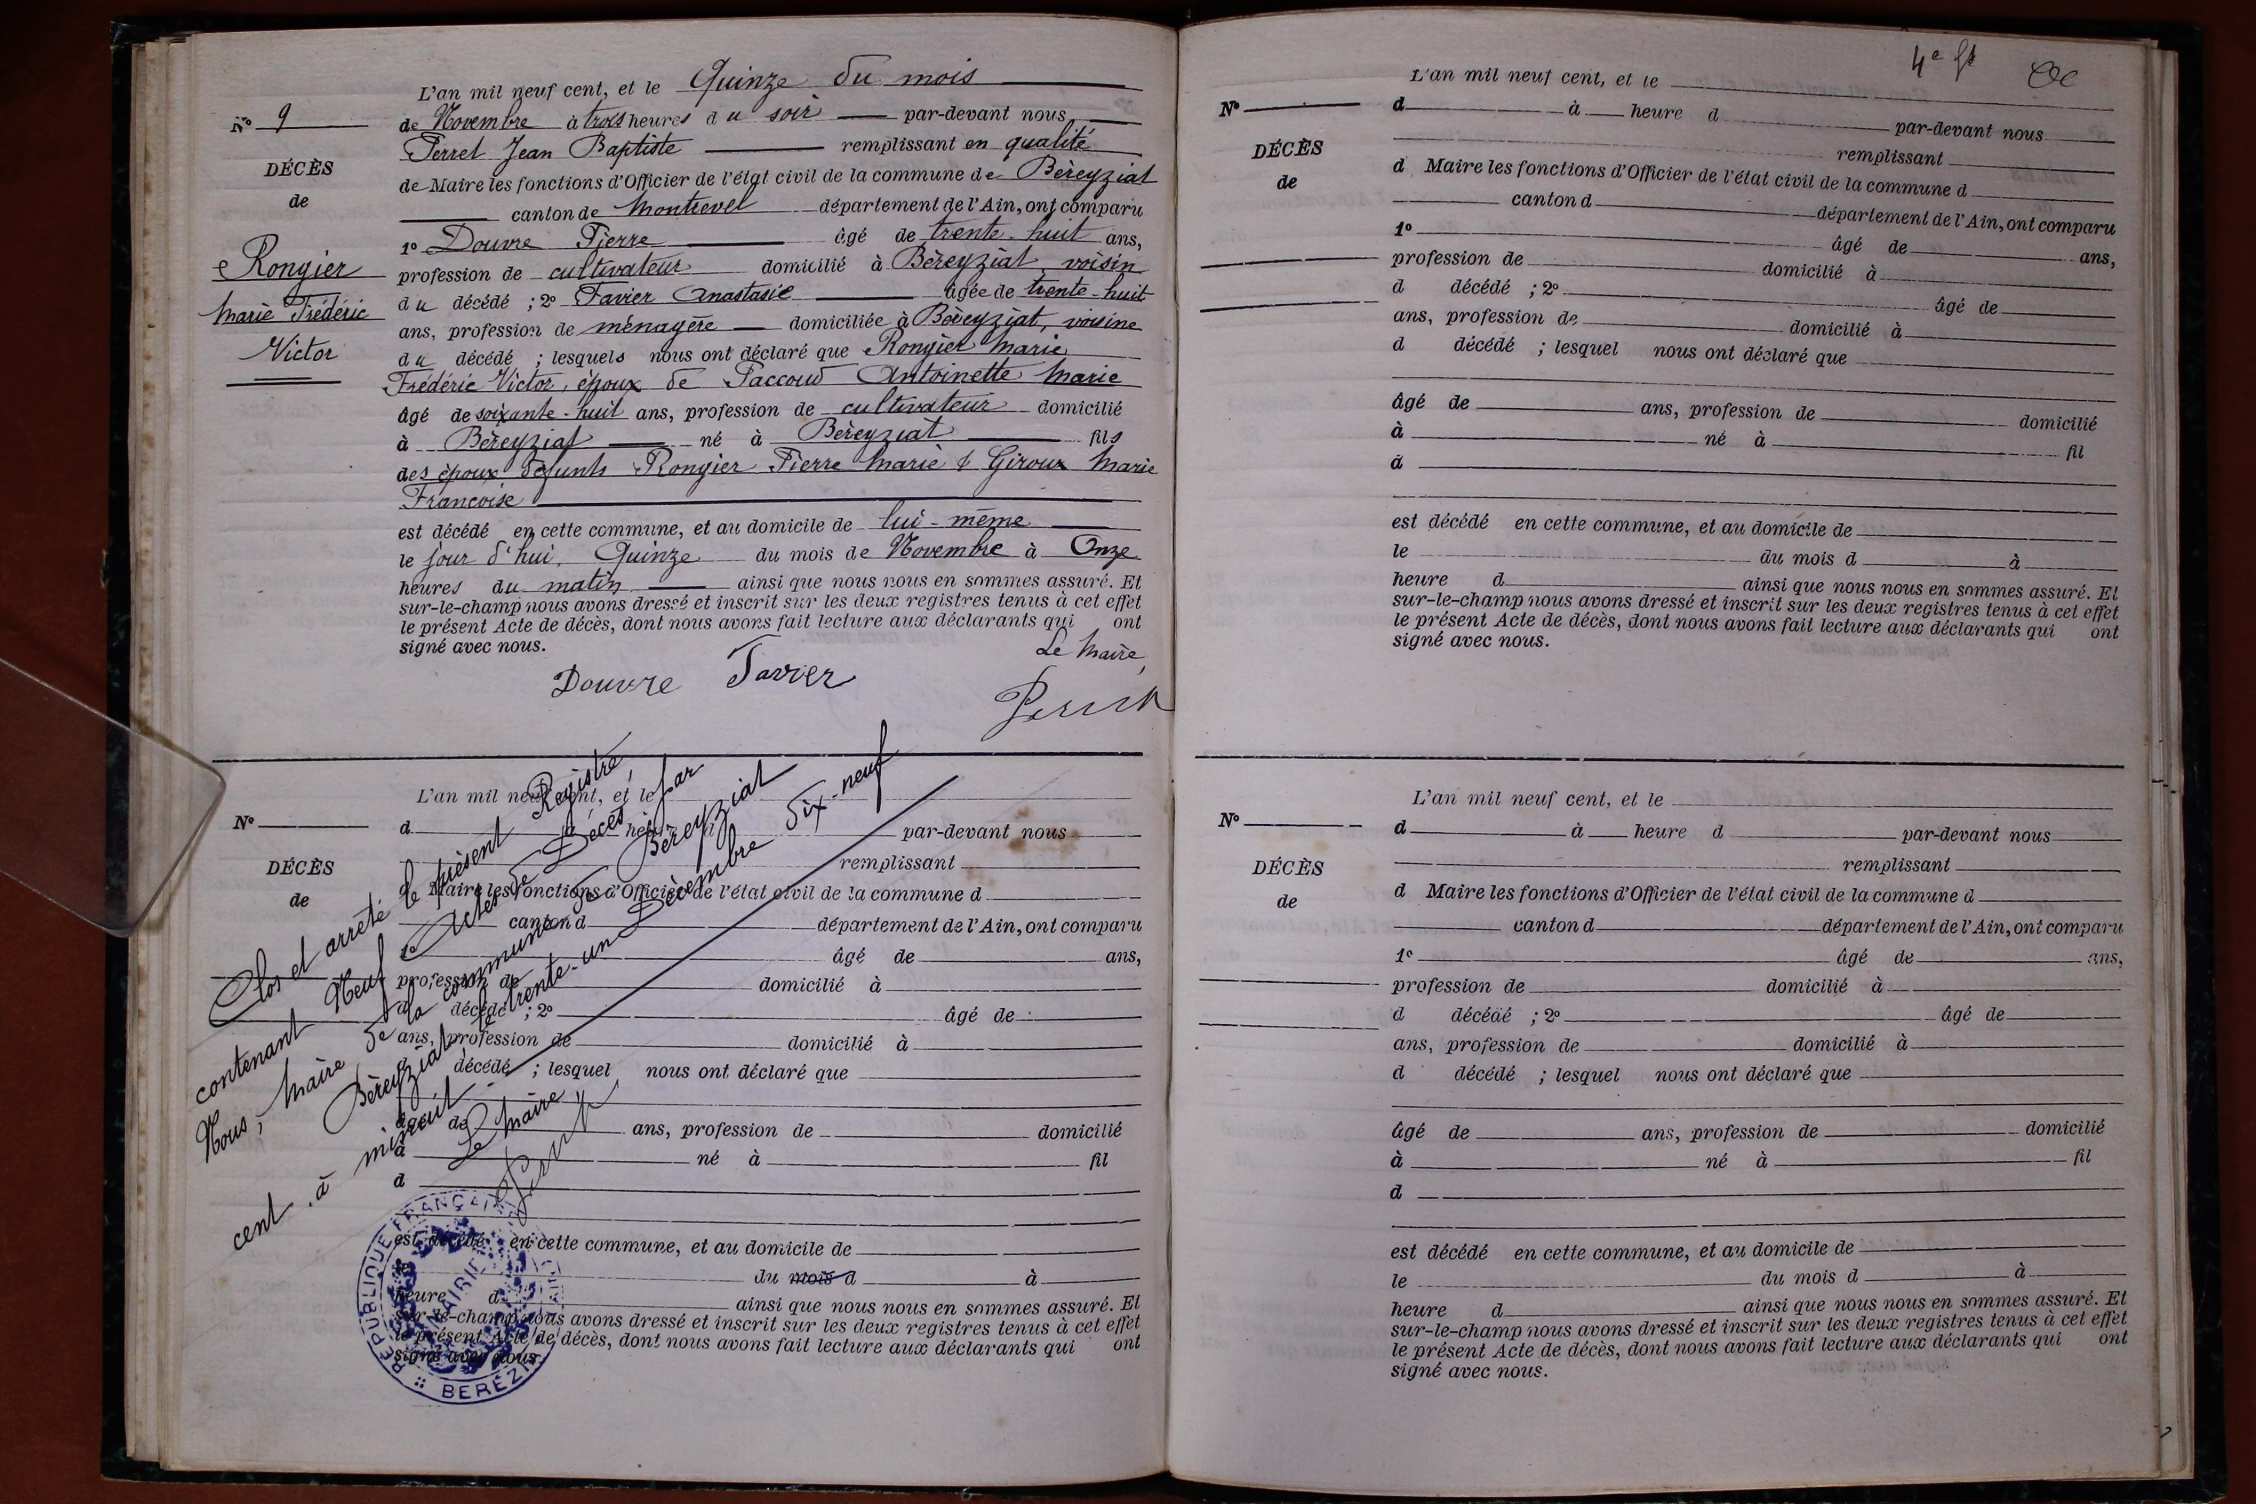 L'an mil neuf cent, et le Quinze du mois
No 9
de Novembre à trois heures du soir par-devant nous
Perret Jean Baptiste remplissant en qualité
DÉCÈS
de Maire les fonctions d'Officier de l'état civil de la commune de Bèreyziat
de
canton de Montrevel département de l'Ain, ont comparu
1o Douvre Pierre âgé de trente-huit ans,
Rongier
profession de cultivateur domicilié à Bèreyziat voisin
Marie Frédéric
du décédé ; 2o Favier Anastasie âgée de trente-huit
ans, profession de ménagère domiciliée à Bèreyziat, voisine
Victor
du décédé ; lesquels nous ont déclaré que Rongier Marie
Frédéric Victor, époux de Paccoud Antoinette Marie
âgé de soixante-huit ans, profession de cultivateur domicilié
à Bèreyziat né à Bèreyziat fils
des époux défunts Rongier Pierre Marie & Giroux Marie
Francoise
est décédé en cette commune, et au domicile de lui-même
le jour d'hui, Quinze du mois de Novembre à Onze
heures du matin ainsi que nous nous en sommes assuré. Et
sur-le-champ nous avons dressé et inscrit sur les deux registres tenus à cet effet
le présent Acte de décès, dont nous avons fait lecture aux déclarants qui ont
signé avec nous.
Le Maire,
Douvre Favier
Perret
L'an mil neuf cent, et le
No
d à heure d par-devant nous
remplissant
DÉCÈS
d Maire les fonctions d'Officier de l'état civil de la commune d
de
canton d département de l'Ain, ont comparu
1o âgé de ans,
profession de domicilié à
d décédé ; 2o âgé de
ans, profession de domicilié à
d décédé ; lesquel nous ont déclaré que
âgé de ans, profession de domicilié
à né à fil
d
est décédé en cette commune, et au domicile de
le du mois d à
heure d ainsi que nous nous en sommes assuré. Et
sur-le-champ nous avons dressé et inscrit sur les deux registres tenus à cet effet
le présent Acte de décès, dont nous avons fait lecture aux déclarants qui ont
signé avec nous.
Clos et arrêté le présent Registre,
contenant Neuf Actes de Décès, par
Nous, Maire de la commune de Bèreyziat
Bèreyziat, le trente-un Décembre dix-neuf
cent, à minuit.
Le Maire
Perret
RÉPUBLIQUE FRANÇAISE
MAIRIE
BERÉZIAT
4e
L'an mil neuf cent, et le
No
d à heure d par-devant nous
remplissant
DÉCÈS
d Maire les fonctions d'Officier de l'état civil de la commune d
de
canton d département de l'Ain, ont comparu
1o âgé de ans,
profession de domicilié à
d décédé ; 2o âgé de
ans, profession de domicilié à
d décédé ; lesquel nous ont déclaré que
âgé de ans, profession de domicilié
à né à fil
d
est décédé en cette commune, et au domicile de
le du mois d à
heure d ainsi que nous nous en sommes assuré. Et
sur-le-champ nous avons dressé et inscrit sur les deux registres tenus à cet effet
le présent Acte de décès, dont nous avons fait lecture aux déclarants qui ont
signé avec nous.
L'an mil neuf cent, et le
No
d à heure d par-devant nous
remplissant
DÉCÈS
d Maire les fonctions d'Officier de l'état civil de la commune d
de
canton d département de l'Ain, ont comparu
1o âgé de ans,
profession de domicilié à
d décédé ; 2o âgé de
ans, profession de domicilié à
d décédé ; lesquel nous ont déclaré que
âgé de ans, profession de domicilié
à né à fil
d
est décédé en cette commune, et au domicile de
le du mois d à
heure d ainsi que nous nous en sommes assuré. Et
sur-le-champ nous avons dressé et inscrit sur les deux registres tenus à cet effet
le présent Acte de décès, dont nous avons fait lecture aux déclarants qui ont
signé avec nous.